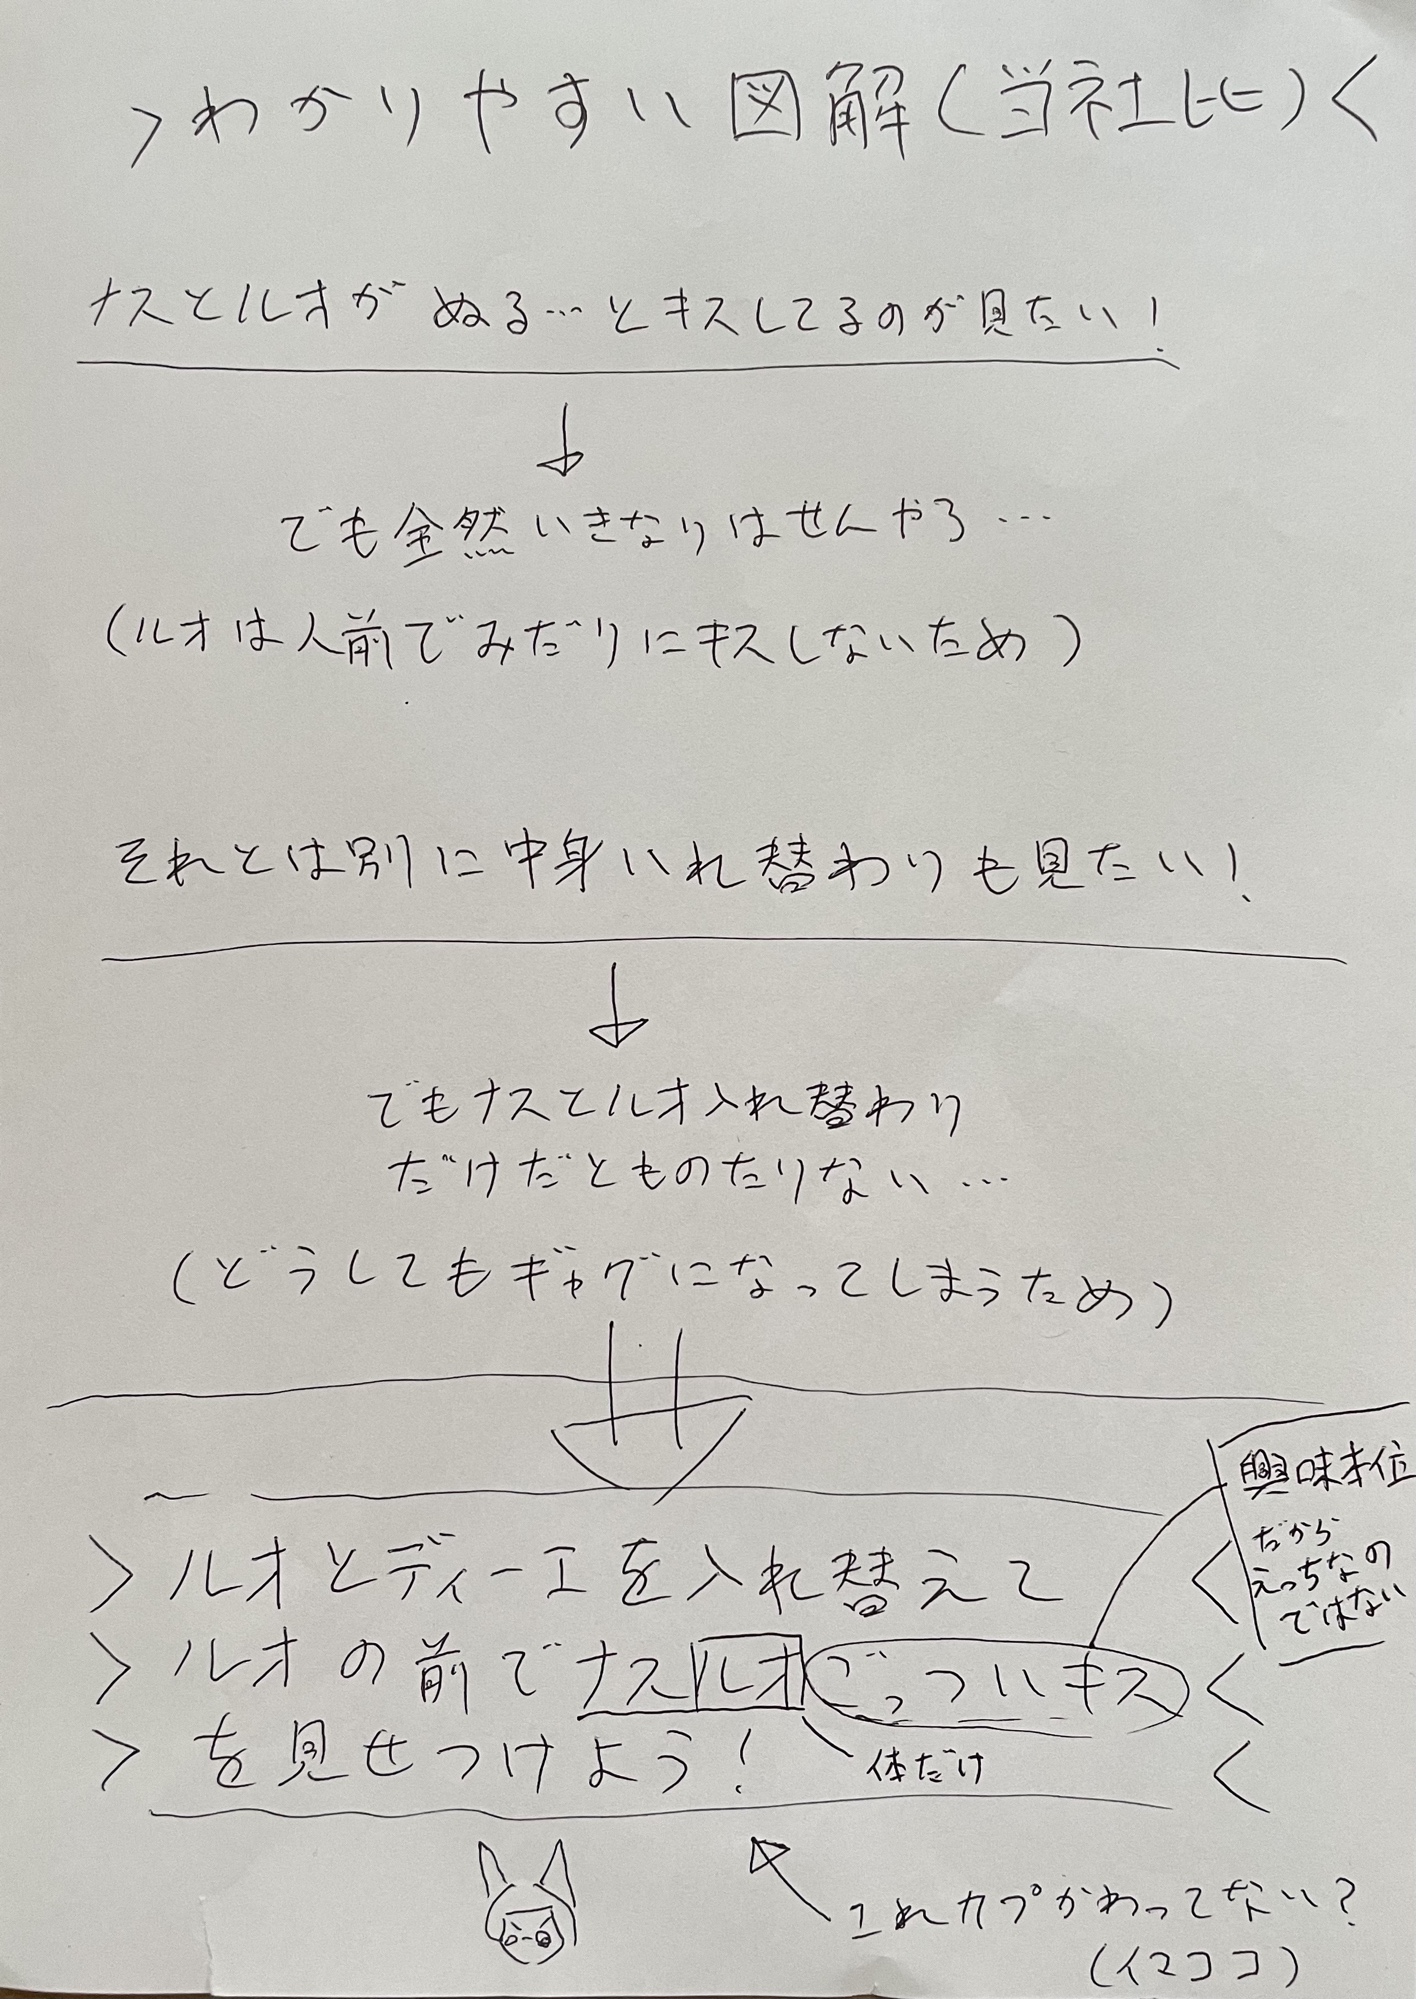 >わかりやすい図解(当社比)<
ナスとルオがぬる…とキスしてるのが見たい!
でも全然いきなりはせんやろ…
(ルオは人前でみだりにキスしないため)
それとは別に中身いれ替わりも見たい!
でもナスとルオ入れ替わり
だけだとものたりない…
(どうしてもギャグになってしまうため)
>ルオとディーエを入れ替えて<
>ルオの前でナスルオごっついキス<
>を見せつけよう!<
興味本位
だから
えっちなの
ではない
体だけ
これカプかわってない?
(イマココ)